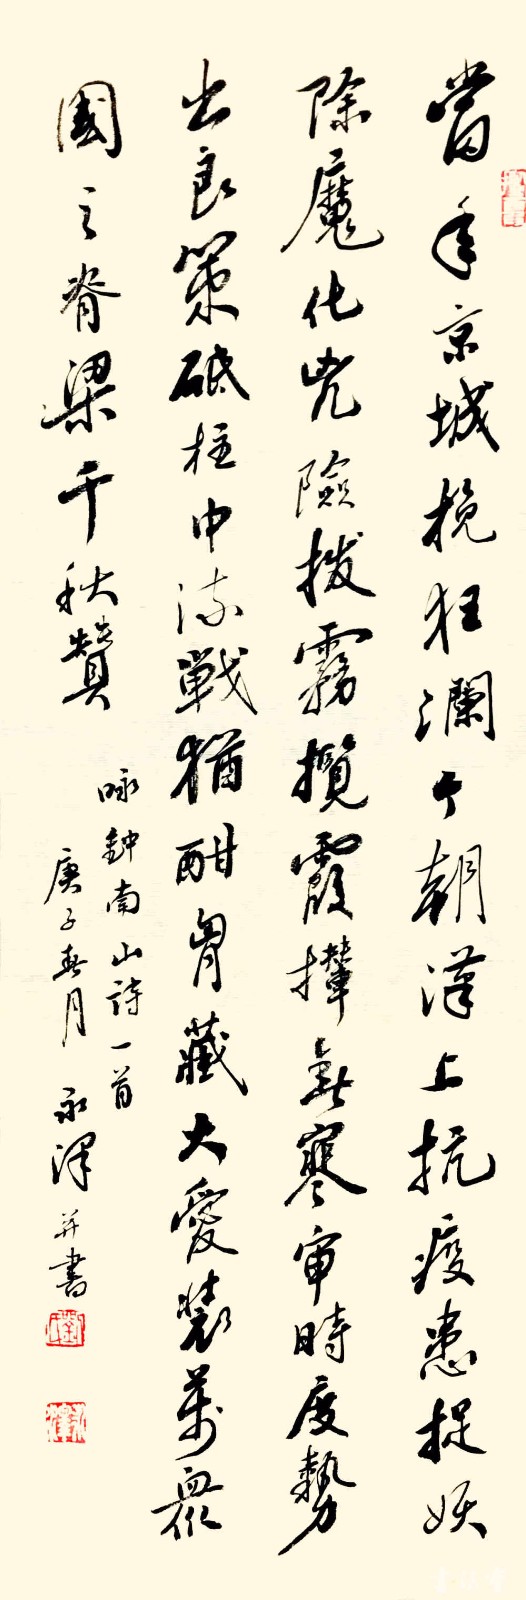 當年京城挽狂瀾今朝漢上抗疫患捉妖
除魔化兇險撥霧攬霞攆無寒審時度勢
出良策砥柱中流戰猶酣胃藏大愛裝萬衆
國之脊梁千秋贊
咏鈡南山詩一首
庚子春月 永澤并書